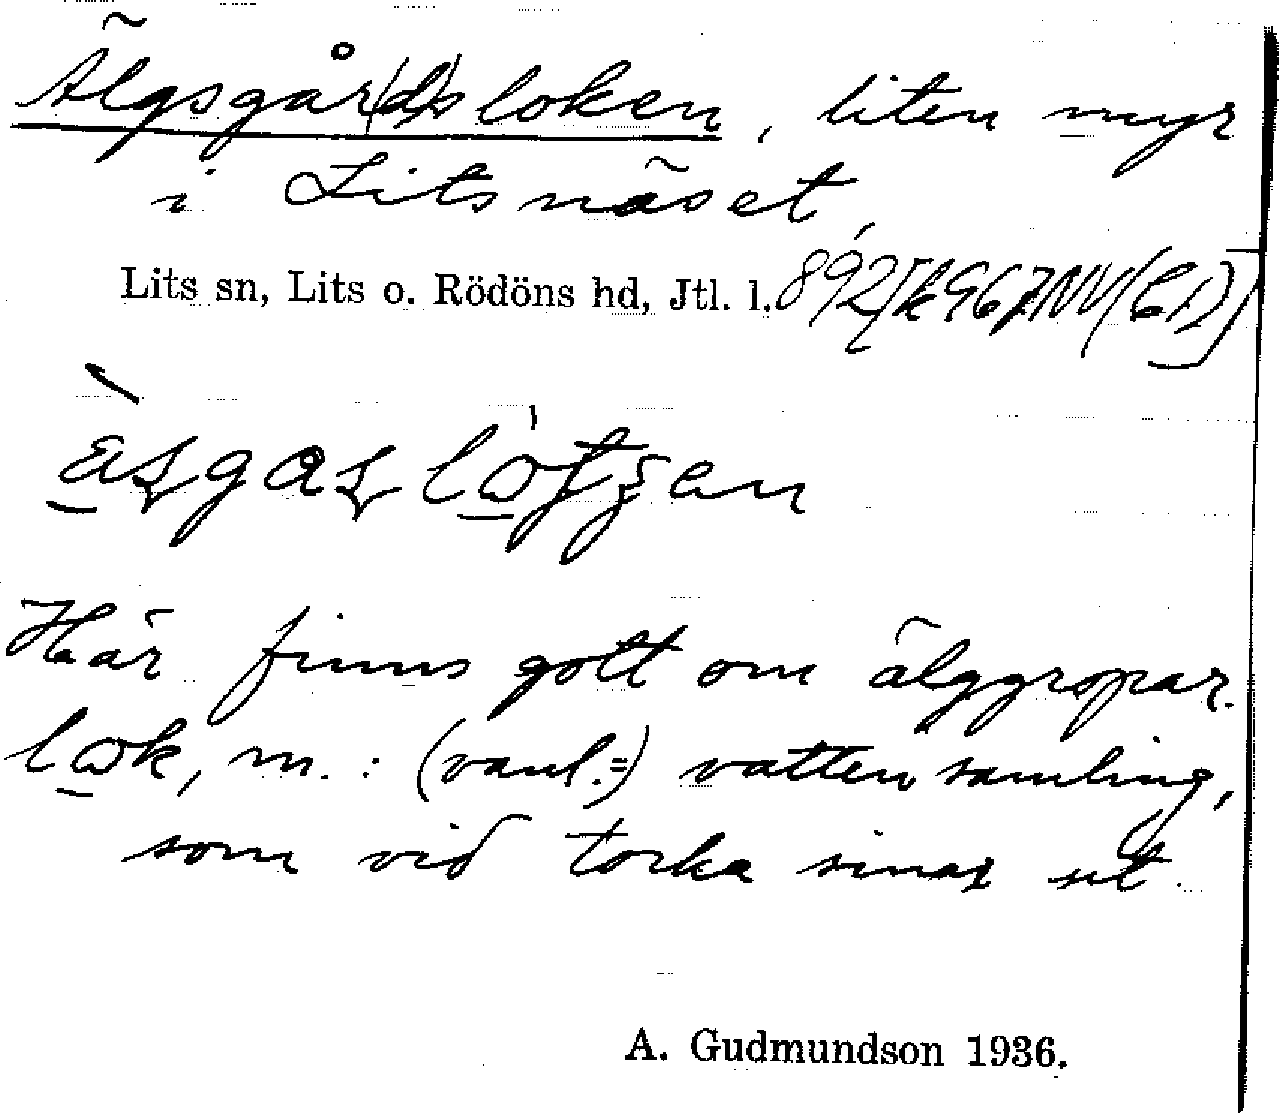 Älgsgår(d)sloken, liten myr
i Litsnäset,
Lits sn, Lits o. Rödöns hd, Jtl. l.
Här finns gott om älggropar.
lok, m.: (vanl.=) vattensamling,
som vid torka sinar ut.
A. Gudmundson 1936.